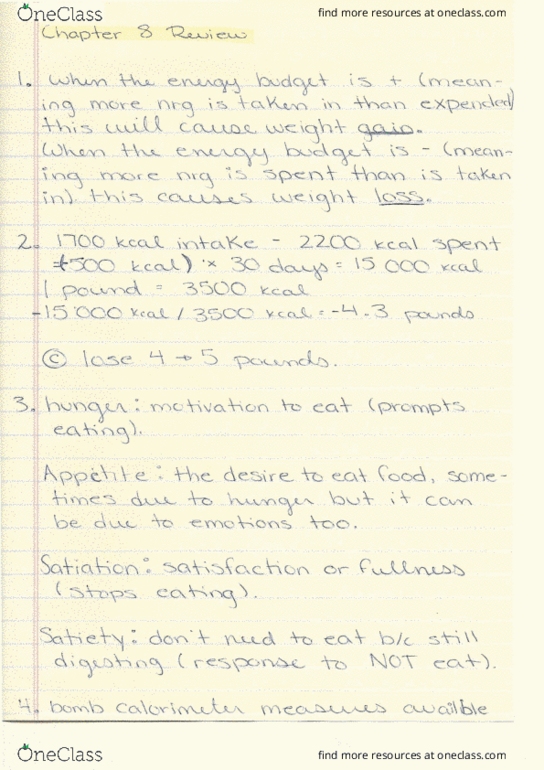 OneClass
find more resources at oneclass.com
Chapter 8 Review
1. When the energy budget is + (mean-
ing more nrg is taken in than expended)
this will cause weight gain.
When the energy budget is - (mean-
ing more nrg is spent than is taken
in) this causes weight loss.
2. 1700 kcal intake - 2200 kcal spent
(-500 kcal) × 30 days = 15 000 kcal
1 pound = 3500 kcal
-15 000 kcal / 3500 kcal = -4.3 pounds
Ⓒ lose 4 → 5 pounds.
3. hunger: motivation to eat (prompts
eating).
Appetite: the desire to eat food, some-
times due to hunger but it can
be due to emotions too.
Satiation: satisfaction or fullness
(stops eating).
Satiety: don't need to eat b/c still
digesting (response to NOT eat).
4. bomb calorimeter measures availble
OneClass
find more resources at oneclass.com